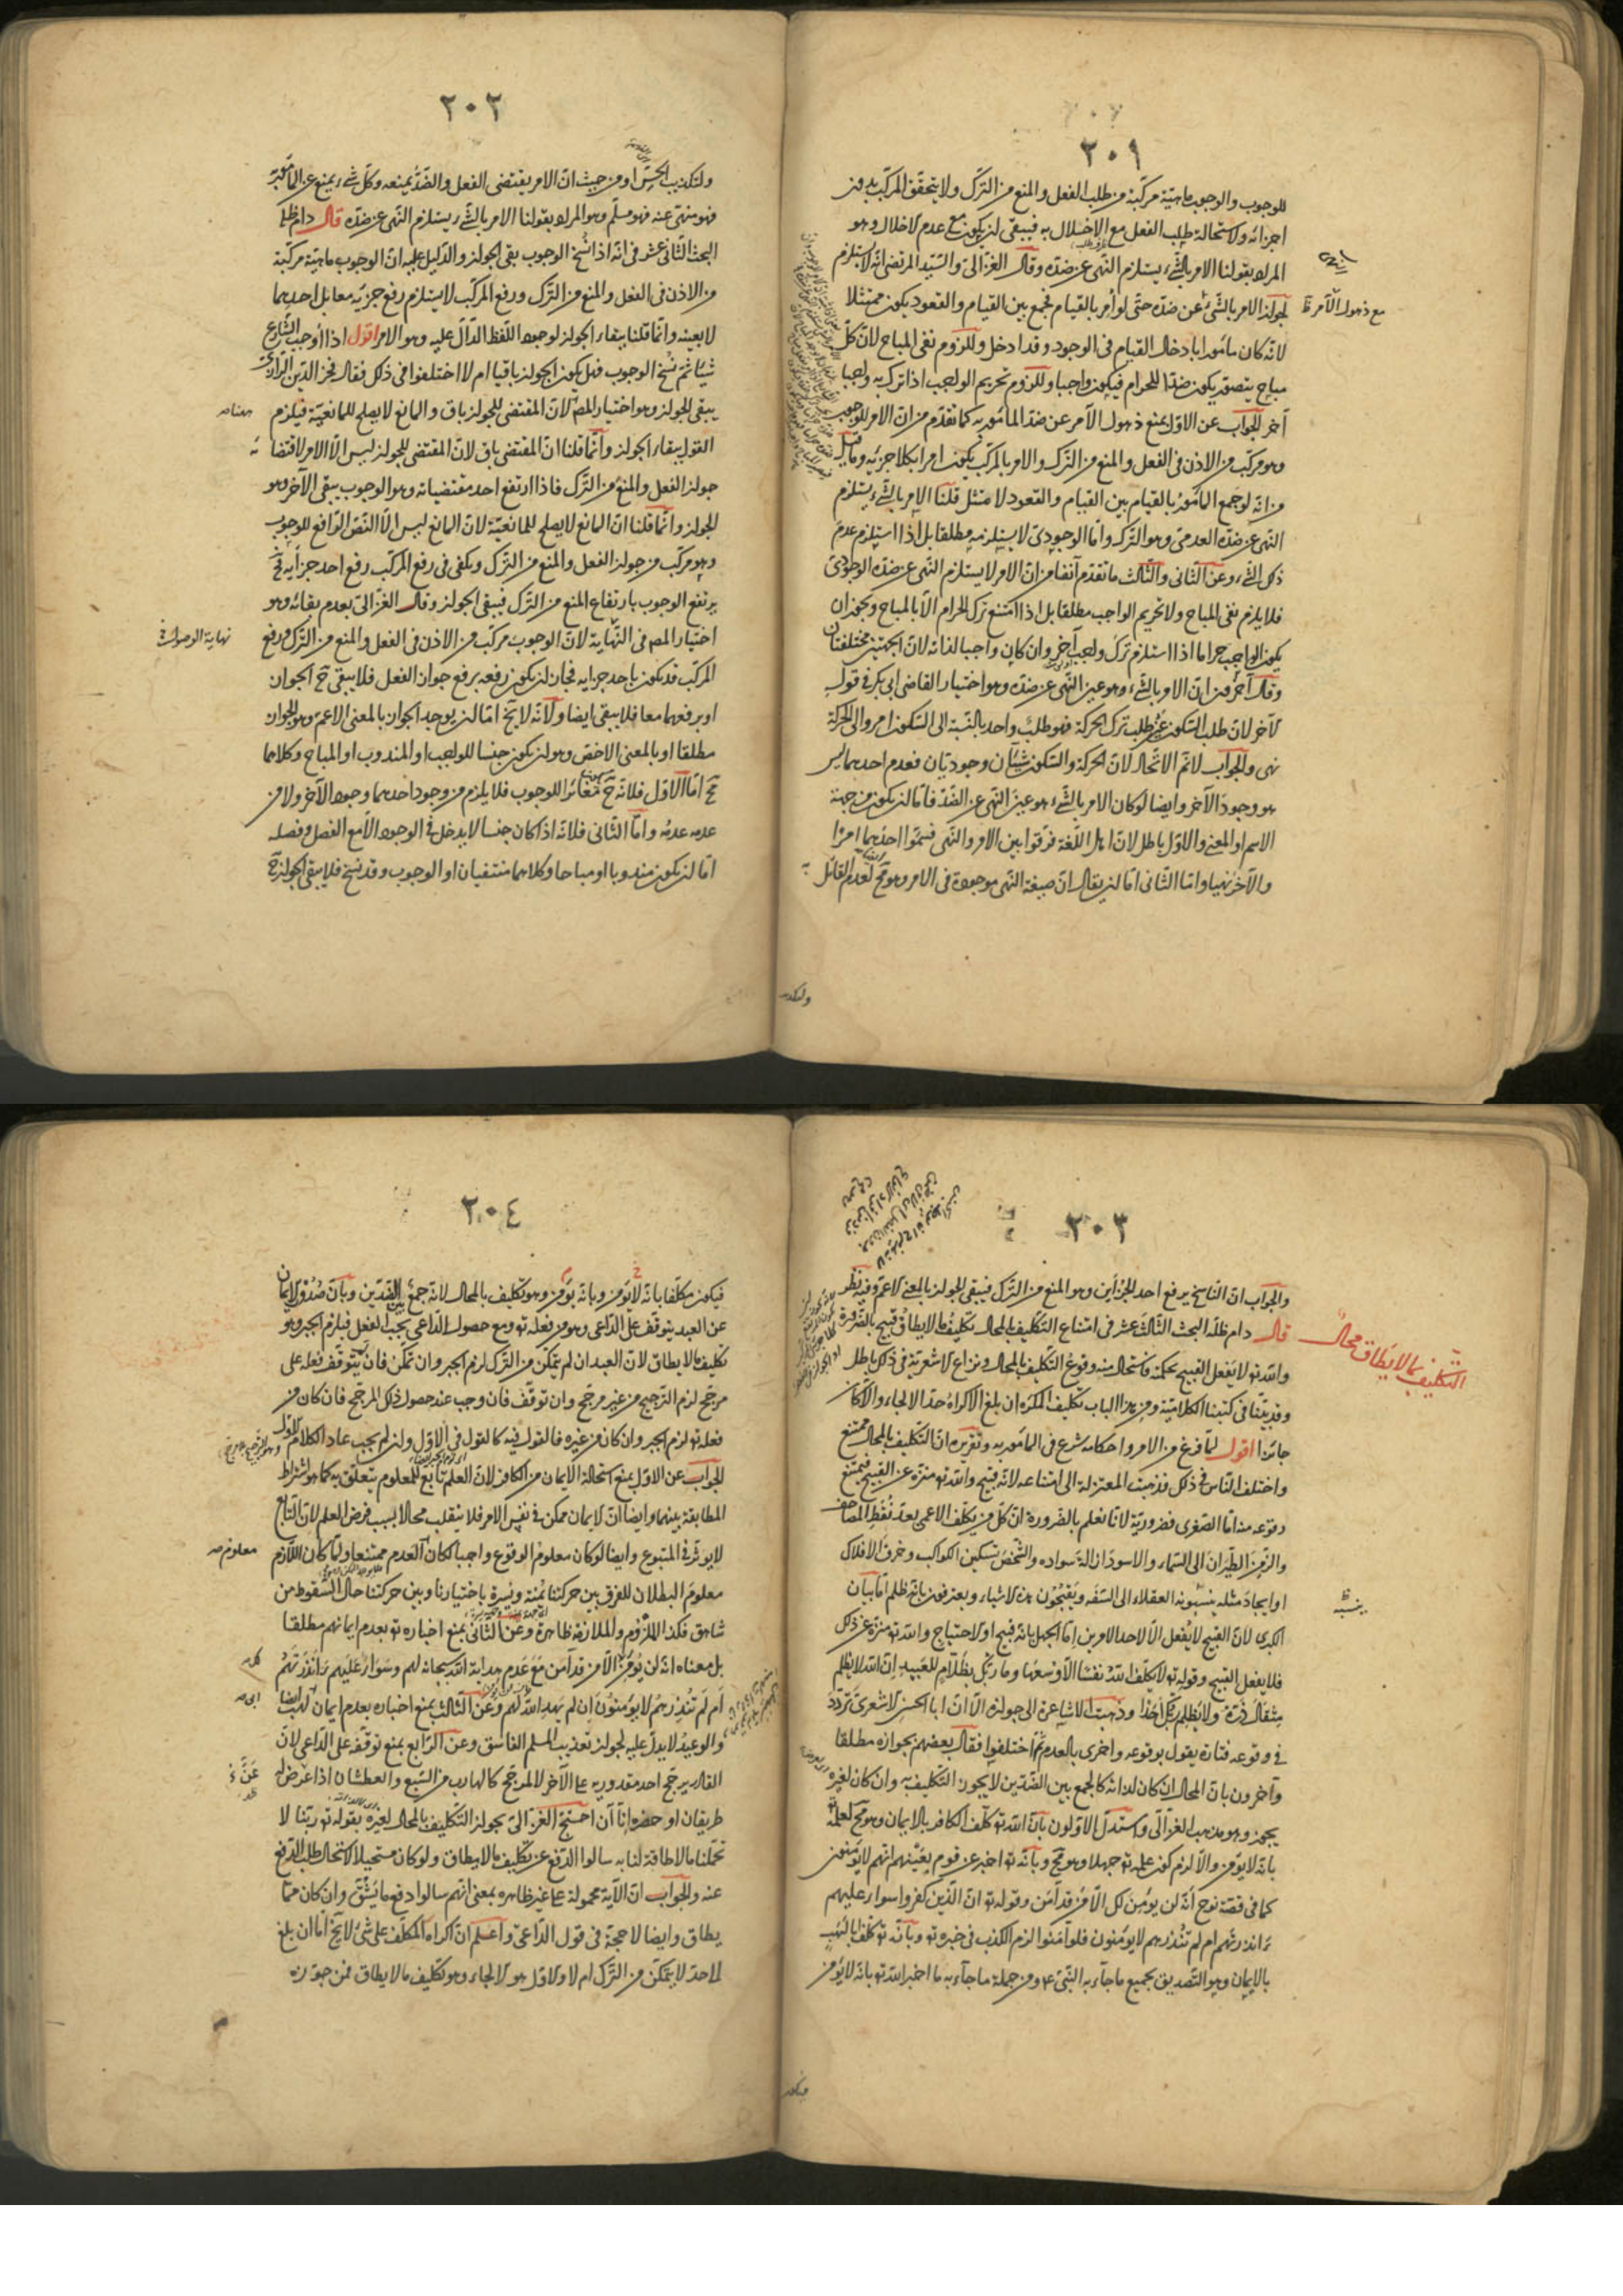 ٢٠١
للوجوب والوجوب ماهيّة مركبّة من طلب الفعل والمنع من التّرك ولا يتحقّق المركّب بدون
اجزائه ولاستحالة طلب الفعل مع الاخلال به فيبقى ان يكون مع عدم الاخلال وهو
المراد بقولنا الامر بالشّيء يستلزم النّهى عن ضدّه وقال الغزالىّ والسّيّد المرتضى انّه لا يستلزم
لجواز الامر بالشّىء عن ضدّه حتّى لو أمر بالقيام فجمع بين القيام والقعود يكون ممتثلا
مع ذهول الآمر ظ
لانّه كان مأمورا بادخال القيام فى الوجود وقد ادخل وللزوم نفى المباح لانّ كلّ
مباح يتصوّر يكون ضدّا للحرام فيكون واجبا وللزوم تحريم الواجب اذا ترك به واجبا
آخر الجواب عن الاوّل بمنع ذهول الآمر عن ضدّ المأمور به كما تقدّم من انّ الامر للوجوب
وهو مركّب من الاذن فى الفعل والمنع من التّرك والامر بالمركّب يكون امرا بكلا جزئيه وما قيل
من انّه لو جمع المأمور بالقيام بين القيام والقعود لامتثل قلنا الامر بالشّىء يستلزم
النّهى عن ضدّه العدمىّ وهو التّرك وامّا الوجودىّ لا يستلزمه مطلقا بل اذا استلزم عدم
ذلك الشّىء وعن الثّانى والثّالث ما تقدّم آنفا من انّ الامر لا يستلزم النّهى عن ضدّه الوجودىّ
فلا يلزم نفى المباح ولا تحريم الواجب مطلقا بل اذا امتنع ترك الحرام الّا بالمباح ويجوز ان
يكون الواجب حراما اذا استلزم ترك واجب آخر وان كان واجبا لذاته لانّ الجهتين مختلفتان
وقال آخرون انّ الامر بالشّىء هو عين النّهى عن ضدّه وهو اختيار القاضى ابى بكر فى قول
لآخر لانّ طلب السّكون عين طلب ترك الحركة فهو طلب واحد بالنّسبة الى السّكون امر والى الحركة
نهى والجواب لا نمّ الاتّحاد لانّ الحركة والسّكون شيئان وجوديّان فعدم احدهما ليس
هو وجود الآخر وايضا لو كان الامر بالشّىء هو عين النّهى عن الضّدّ فامّا ان يكون من جهة
الاسم او المعنى والاوّل باطل لانّ اهل اللّغة فرّقوا بين الامر والنّهى فسمّوا احدهما امرا
والآخر نهيا وامّا الثّانى امّا ان يقال انّ صيغة النّهى موجودة فى الامر وهو مح لعدم القائل به
٢٠٢
ولتكذيب الحسّ او من حيث انّ الامر يقتضى الفعل والضّدّ يمنعه وكلّ شىء يمنع عن المأمور به
فهو منهىّ عنه فهو مسلّم وهو المراد بقولنا الامر بالشّىء يستلزم النّهى عن ضدّه قال دام ظله
البحث الثّانى عشر فى انّه اذا نسخ الوجوب بقى الجواز والدّليل عليه انّ الوجوب ماهيّة مركّبة
من الاذن فى الفعل والمنع من التّرك ورفع المركّب لا يستلزم رفع جزئيه معا بل احدهما
لا بعينه وانّما قلنا ببقاء الجواز لوجود اللّفظ الدّالّ عليه وهو الامر اقول اذا اوجب الشّارع
شيئا ثمّ نسخ الوجوب فهل يكون الجواز باقيا ام لا اختلفوا فى ذلك فقال فخر الدّين الرّازى
يبقى الجواز وهو اختيار المص لانّ المقتضى للجواز باق والمانع لا يصلح للمانعيّة فيلزم
القول ببقاء الجواز وانّما قلنا انّ المقتضى باق لانّ المقتضى للجواز ليس الّا الامر لاقتضائه
جواز الفعل والمنع من التّرك فاذا ارتفع احد مقتضياته وهو الوجوب يبقى الآخر وهو
الجواز وانّما قلنا انّ المانع لا يصلح للمانعيّة لانّ المانع ليس الّا النّصّ الرّافع للوجوب
وهو مركّب من جواز الفعل والمنع من التّرك ويكفى فى رفع المركّب رفع احد جزأيه فح
يرتفع الوجوب بارتفاع المنع من التّرك فيبقى الجواز وقال الغزالىّ بعدم بقائه وهو
اختيار المص فى النّهاية لانّ الوجوب مركّب من الاذن فى الفعل والمنع من التّرك ورفع
نهاية الوصول
المركّب قد يكون باحد جزأيه فجاز ان يكون رفعه برفع جواز الفعل فلا يبقى ح الجواز
او برفعهما معا فلا يبقى ايضا ولانّه لا يخ امّا ان يوجد الجواز بالمعنى الاعمّ وهو الجواز
مطلقا او بالمعنى الاخصّ وهو ان يكون جنسا للواجب او المندوب او المباح وكلاهما
مح امّا الاوّل فلانّه ح مغائرا للوجوب فلا يلزم من وجود احدهما وجود الآخر ولا من
عدمه عدمه وامّا الثّانى فلانّه اذا كان جنسا لا يدخل فى الوجود الّا مع الفصل وفصله
امّا ان يكون مندوبا او مباحا وكلاهما منتفيان او الوجوب وقد نسخ فلا يبقى الجواز ح
٢٠٣
والجواب انّ النّاسخ يرفع احد الجزأين وهو المنع من التّرك فيبقى الجواز بالمعنى الاعمّ وفيه نظر
قال دام ظلّه البحث الثّالث عشر فى امتناع التّكليف بالمحال تكليف ما لا يطاق قبيح بالضّرورة
التكليف بما لا يطاق محال
والله تع لا يفعل القبيح لحكمته فاستحال منه وقوع التّكليف بالمحال ونزاع الاشعريّة فى ذلك باطل
وقد بيّنّا فى كتبنا الكلاميّة ومن هذا الباب تكليف المكره ان بلغ الاكراه حدّ الالجاء والّا كان
جائزا اقول لمّا فرغ من الامر واحكامه شرع فى المأمور به وتقريره انّ التّكليف بالمحال ممتنع
واختلف النّاس فى ذلك فذهبت المعتزلة الى امتناعه لانّه قبيح والله تع منزّه عن القبيح فيمتنع
وقوعه منه امّا الصّغرى فضروريّة لانّا نعلم بالضّرورة انّ كلّ من يكلّف الاعمى بعد نقط المصاحف
والزّمن الطّيران الى السّماء والاسود ازالة سواده والشّخص تسكين الكواكب وخرق الافلاك
او ايجاد مثله ينسبونه العقلاء الى السّفه ويقبّحون هذه الاشياء ويعترفون بانّه ظلم امّا بيان
الكبرى لانّ القبيح لا يفعل الّا لاحد الامرين امّا الجهل بانّه قبيح او لاحتياج والله تع منزّه عن ذلك
فلا يفعل القبيح وقوله تع لا يكلّف الله نفسا الّا وسعها وما ربّك بظلّام للعبيد انّ الله لا يظلم
مثقال ذرّة ولا يظلم ربّك احدا وذهبت الاشاعرة الى جوازه الّا انّ ابا الحسن الاشعرى تردّد
فى وقوعه فتارة يقول بوقوعه واخرى بالعدم ثمّ اختلفوا فقال بعضهم بجوازه مطلقا
وآخرون بانّ المحال ان كان لذاته كالجمع بين الضّدّين لا يجوز التّكليف به وان كان لغيره
يجوز وهو مذهب الغزّالى واستدلّ الاوّلون بانّ الله تع كلّف الكافر بالايمان وهو مح لعلمه
بانّه لا يؤمن والّا لزم كون علمه تع جهلا وهو مح وبانّه تع اخبر عن قوم بعينهم انّهم لا يؤمنون
كما فى قصّة نوح انّه لن يؤمن لك الّا من قد آمن وقوله تع انّ الّذين كفروا سواء عليهم
ءانذرتهم ام لم تنذرهم لا يؤمنون فلو آمنوا لزم الكذب فى خبره تع وبانّه تع كلّف ابا لهب
بالايمان وهو التّصديق بجميع ما جاء به النّبىّ ع ومن جملة ما جاء به ما اخبر الله تع بانّه لا يؤمن
٢٠٤
فيكون مكلّفا بانّه لا يؤمن وبانّه يؤمن وهو تكليف بالمحال لانّه جمع بين الضّدّين وبانّ صدور الايمان
عن العبد يتوقّف على الدّاعى وهو من فعله تع ومع حصول الدّاعى يجب الفعل فيلزم الجبر وهو
تكليف ما لا يطاق لانّ العبد ان لم يتمكّن من التّرك لزم الجبر وان تمكّن فان لم يتوقّف فعله على
مرجّح لزم التّرجيح من غير مرجّح وان توقّف فان وجب عند حصول ذلك المرجّح فان كان من
فعله تع لزم الجبر وان كان من غيره فالقول فيه كالقول فى الاوّل وان لم يجب عاد الكلام الاوّل
الجواب عن الاوّل بمنع استحالة الايمان من الكافر لانّ العلم تابع للمعلوم يتعلّق به كما هو لاشتراط
المطابقة بينهما وايضا انّ الايمان ممكن فى نفس الامر فلا ينقلب محالا بسبب فرض العلم لانّ التّابع
لا يؤثّر فى المتبوع وايضا لو كان معلوم الوقوع واجبا لكان العدم ممتنعا ولمّا كان اللّازم
معلوم البطلان للفرق بين حركتنا يمنة ويسرة باختيارنا وبين حركتنا حال السّقوط من
شاهق فكذا الملزوم والملازمة ظاهرة وعن الثّانى بمنع اخباره تع بعدم ايمانهم مطلقا
بل معناه انّه لن يؤمن الّا من قد آمن مع عدم هداية الله سبحانه لهم وسواء عليهم ءانذرتهم
ام لم تنذرهم لا يؤمنون ان لم يهد الله لهم وعن الثّالث بمنع اخباره بعدم ايمان لهب ايضا
والوعيد لا يدلّ عليه لجواز تعذيب المسلم الفاسق وعن الرّابع بمنع توقّفه على الدّاعى لانّ
القادر يرجّح احد مقدوريه على الآخر لا لمرجّح كالهارب من السّبع والعطشان اذا عرض له
طريقان او حضره إناآن احتجّ الغزالىّ بجواز التّكليف بالمحال لغيره بقوله تع ربّنا لا
تحمّلنا ما لا طاقة لنا به سالوا الدّفع عن تكليف ما لا يطاق ولو كان مستحيلا لاستحال طلب الدّفع
عنه والجواب انّ الآية محمولة على غير ظاهره بمعنى انّهم سالوا دفع ما يشقّ وان كان ممّا
يطاق وايضا لا حجّة فى قول الدّاعى واعلم انّ اكراه المكلّف على شىء لا يخ امّا ان بلغ
الى حدّ لا يتمكّن من التّرك ام لا والاوّل هو الالجاء وهو تكليف ما لا يطاق فمن جوّزه